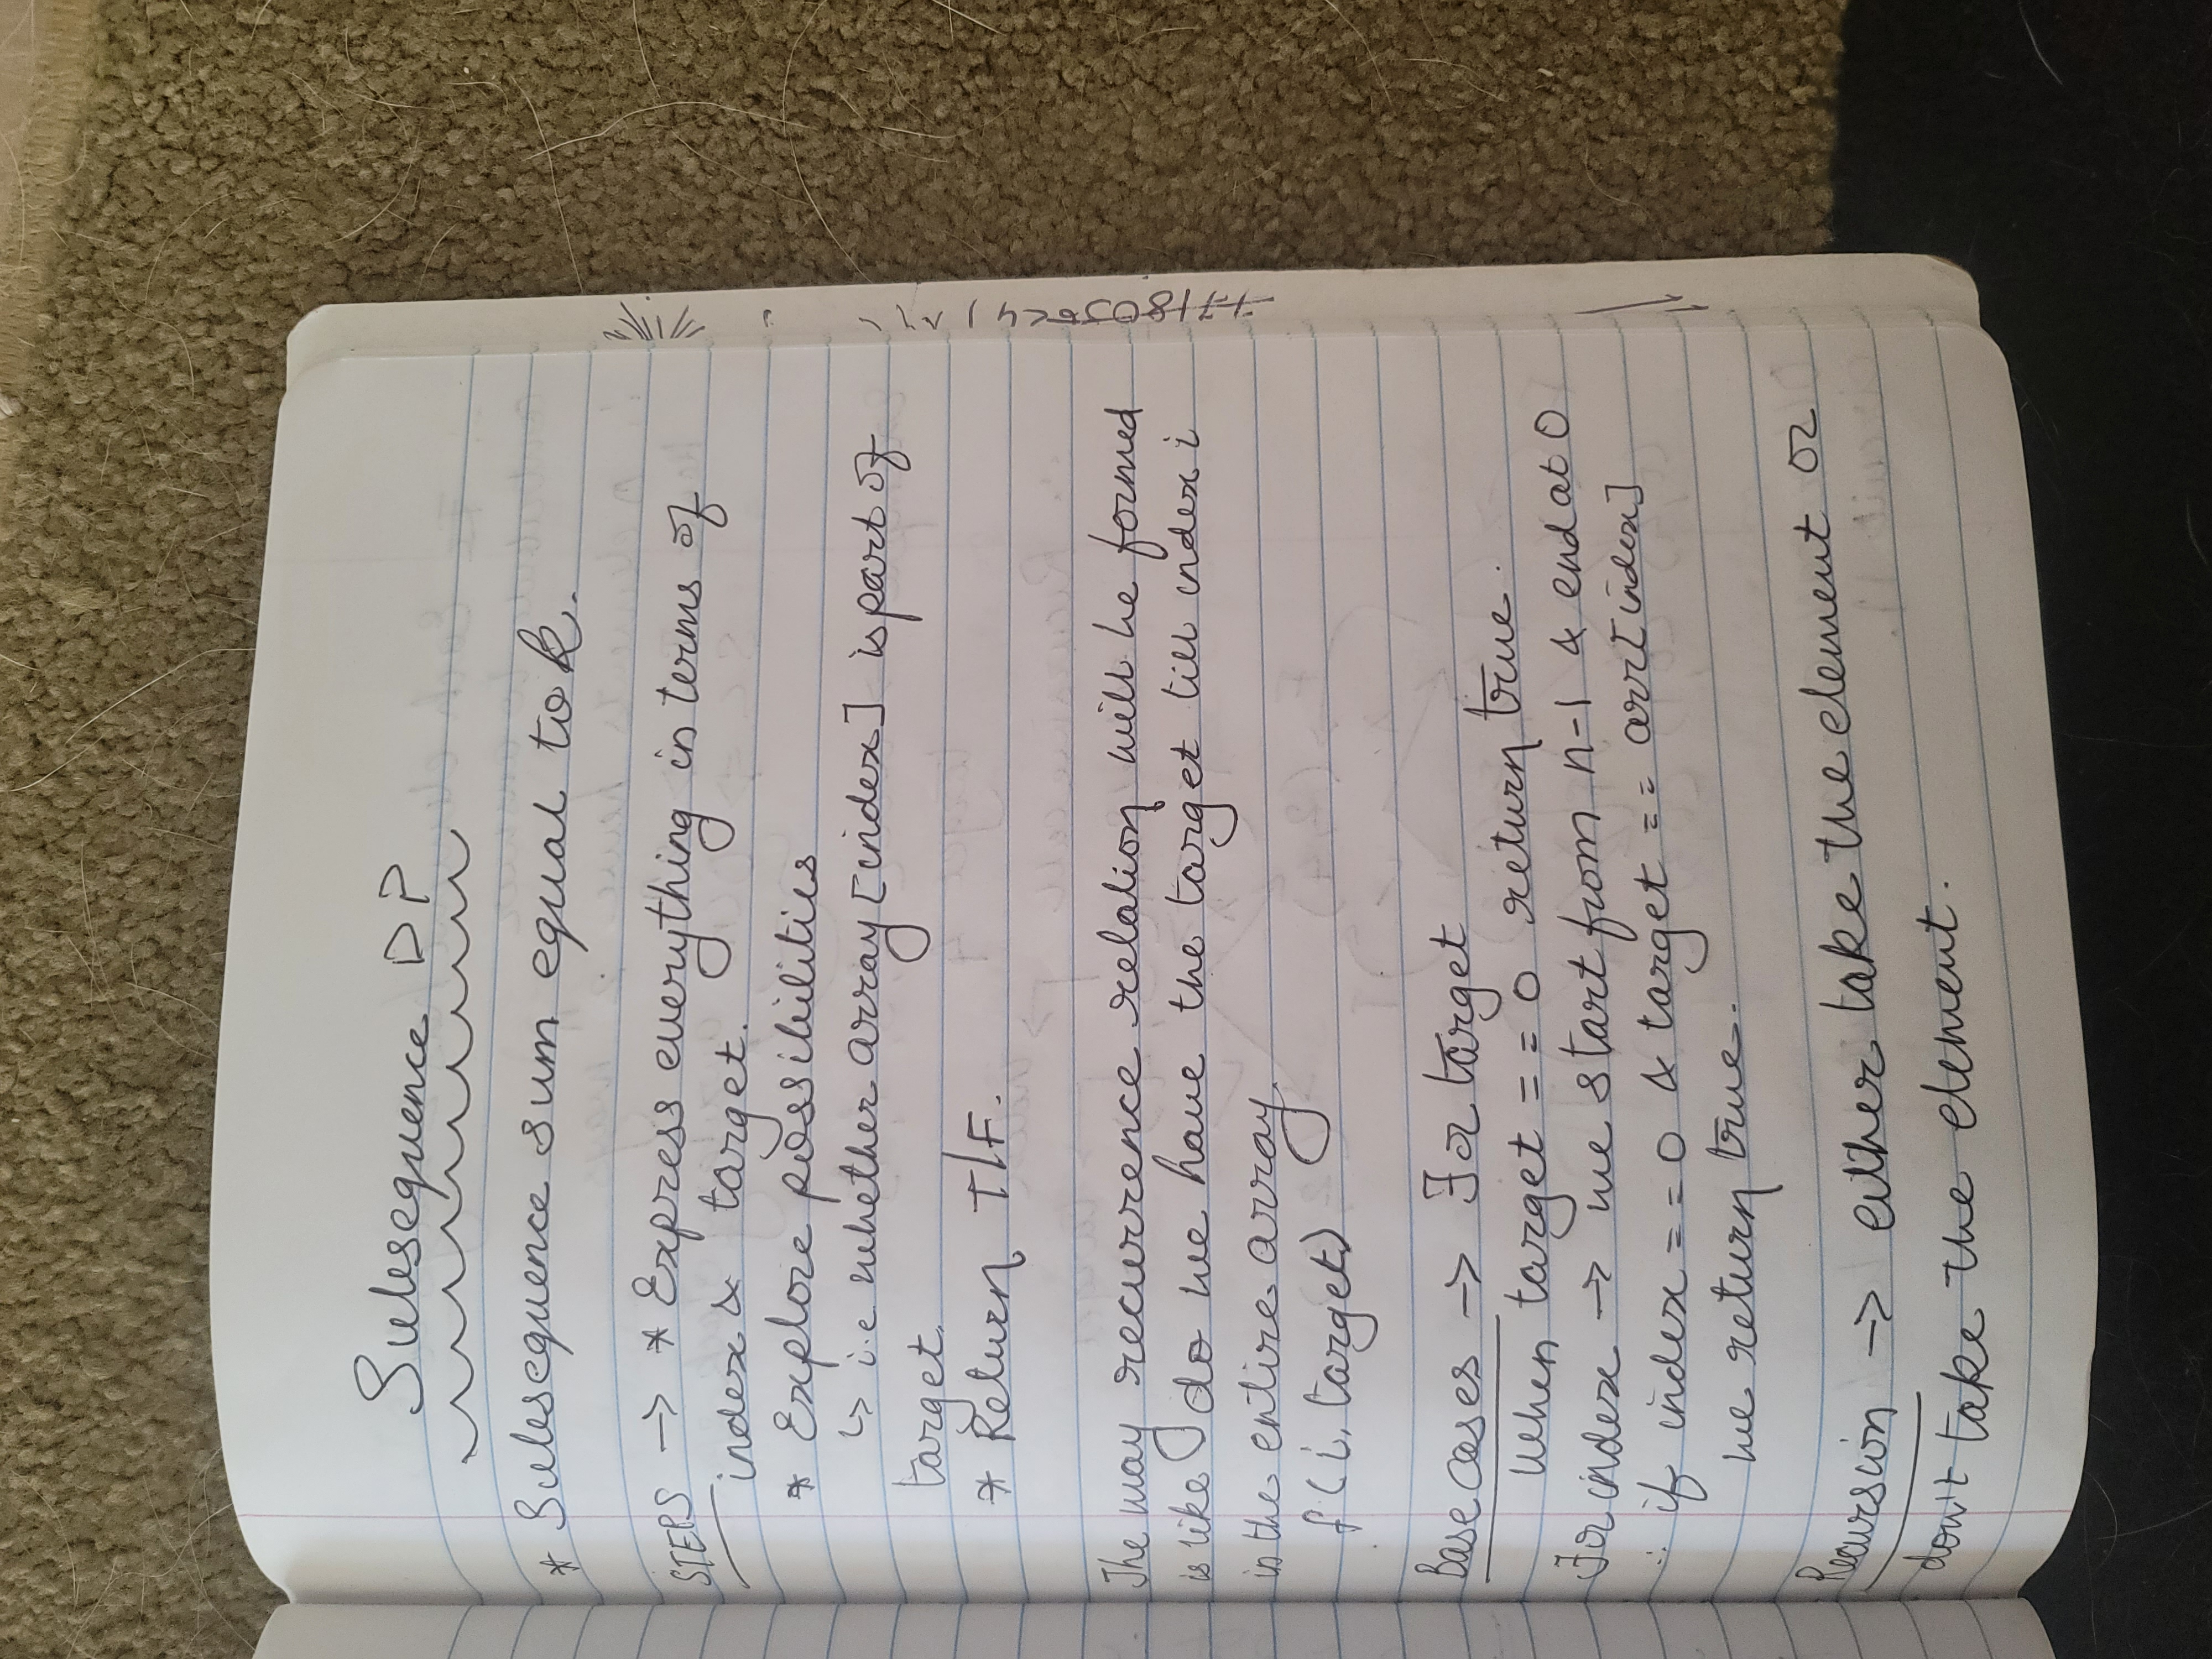 Subsequence DP
* Subsequence sum equal to k.
STEPS -> * Express everything in terms of
index & target.
* Explore possibilities
↳ i.e whether array [index] is part of
target.
* Return T/F.
The way recurrence relation will be formed
is like do we have the target till index i
in the entire array.
f(i, target)
Base cases -> For target
When target == 0 return true.
For index -> we start from n-1 & end at 0
∴ if index == 0 & target == arr[index]
we return true.
Recursion -> either take the element or
don't take the element.